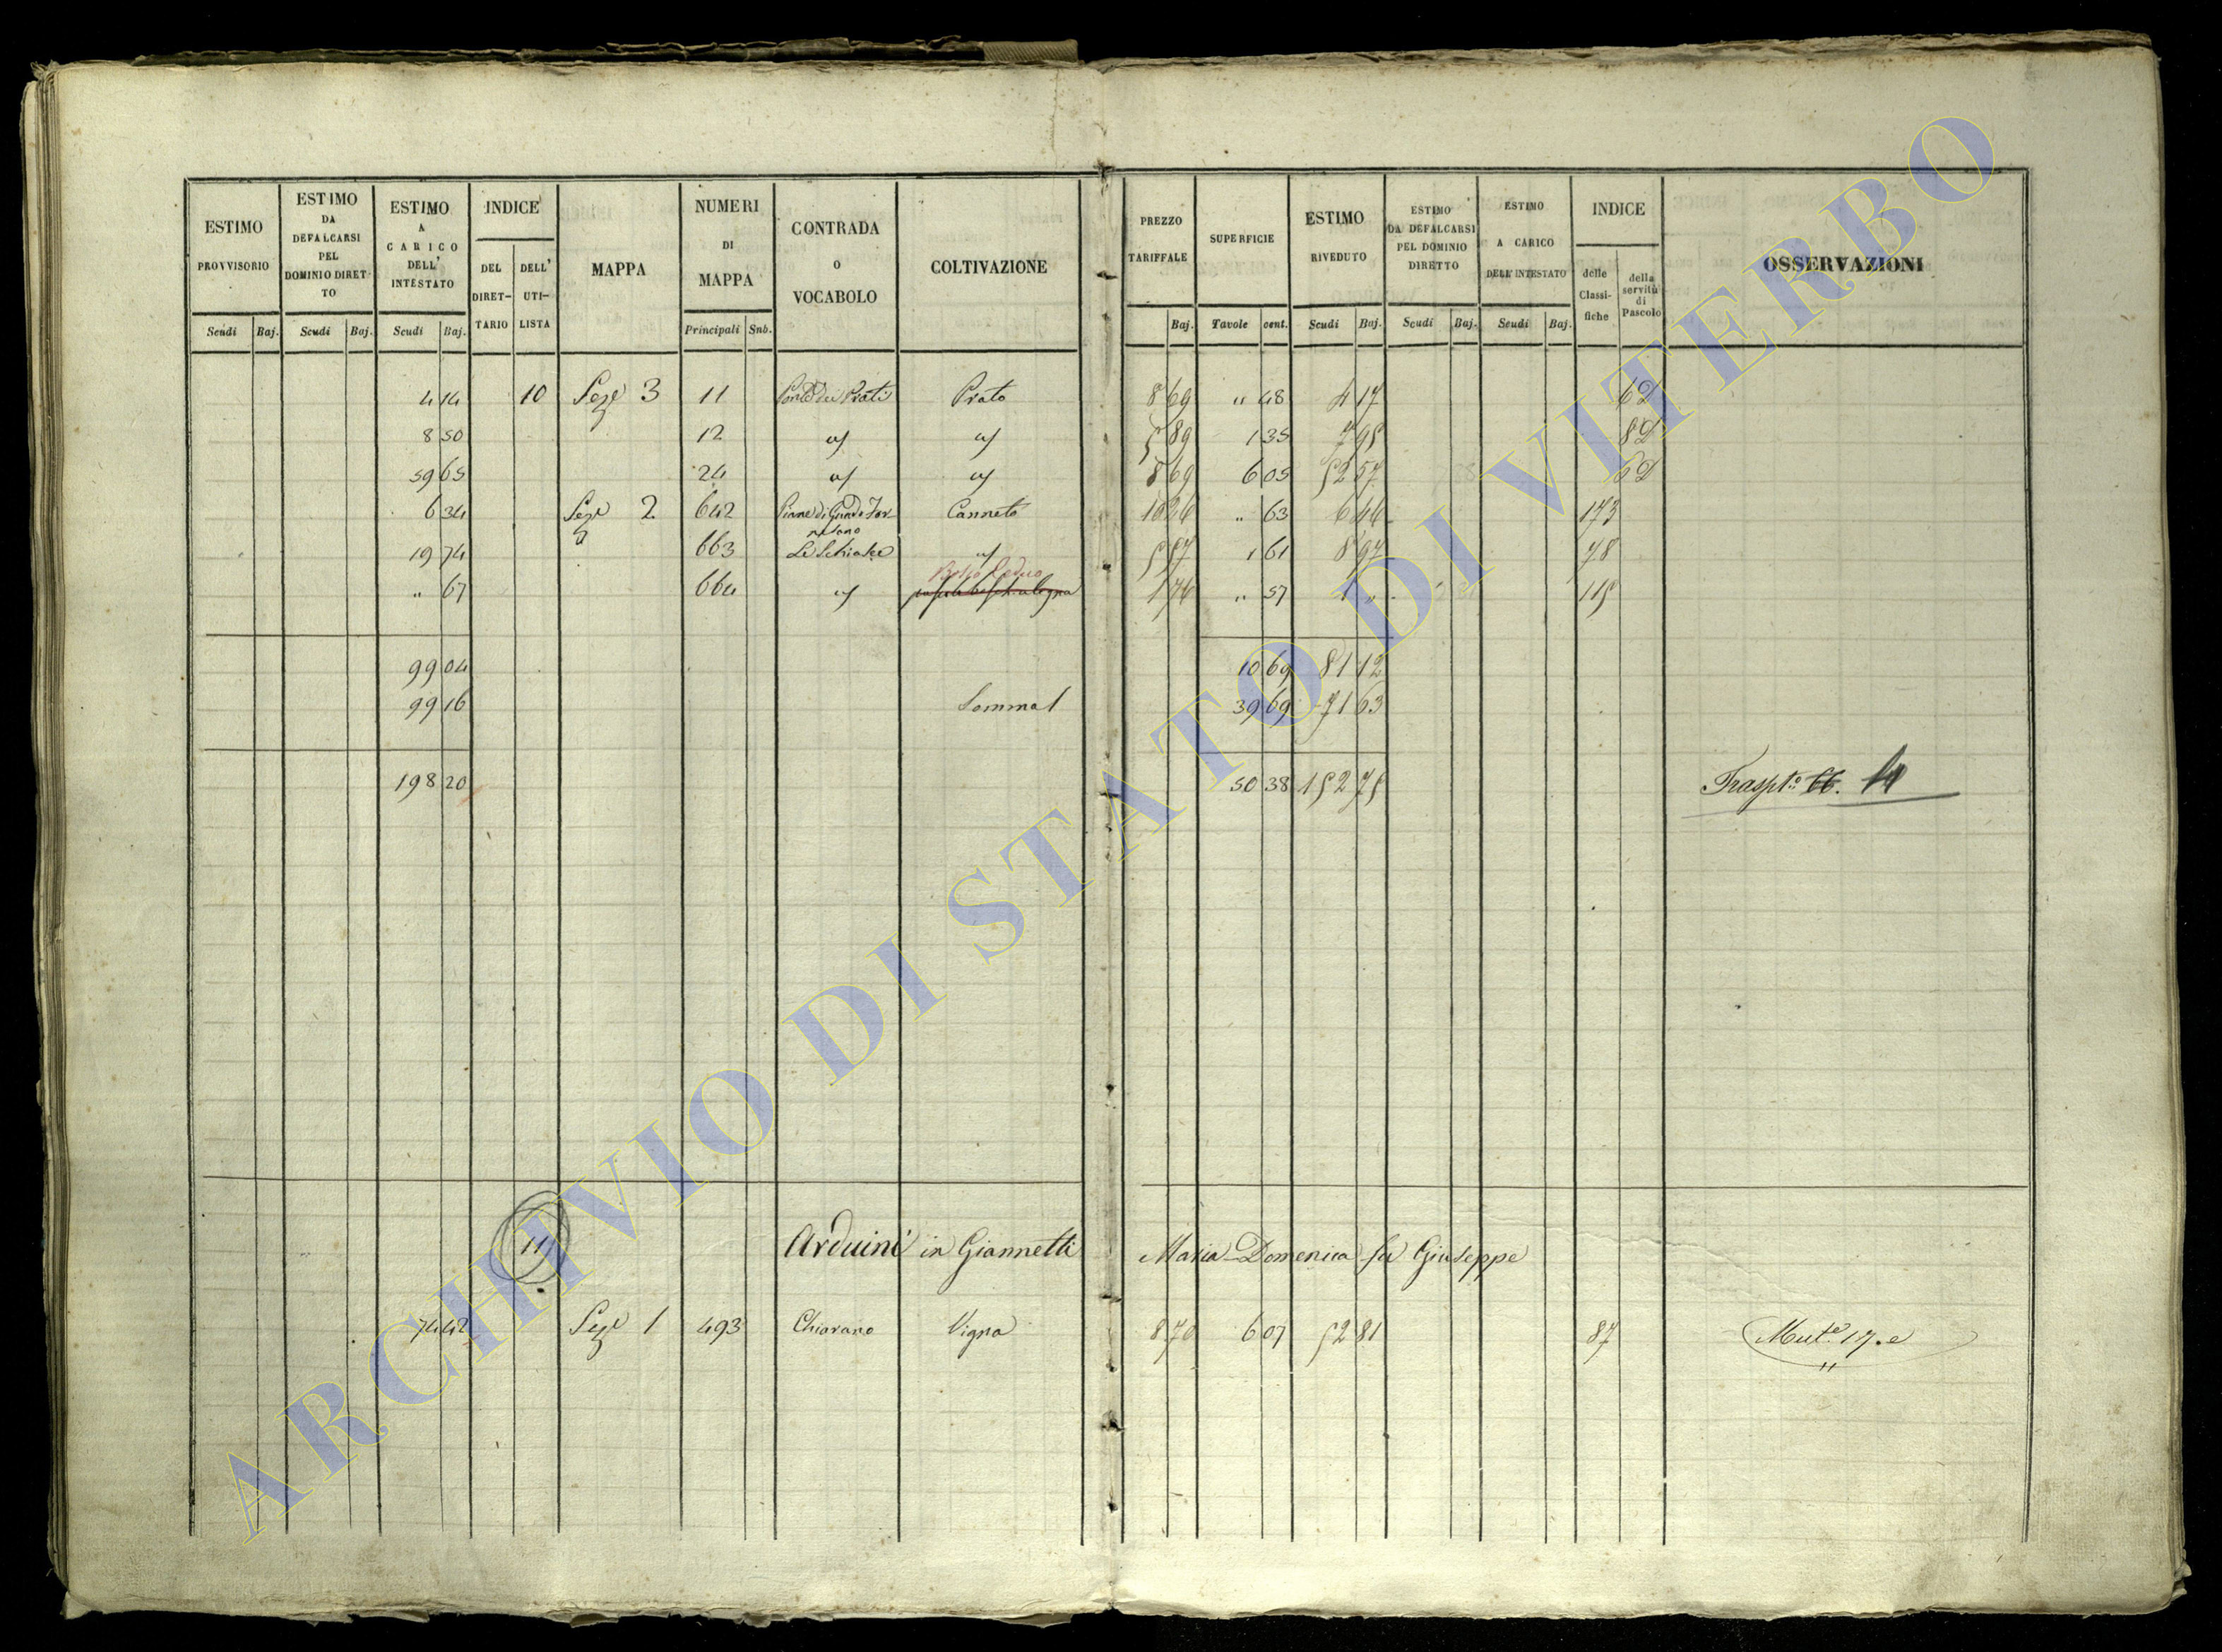 ESTIMO PROVVISORIO
Scudi Baj.
ESTIMO DA DEFALCARSI PEL DOMINIO DIRETTO
Scudi Baj.
ESTIMO A CARICO DELL' INTESTATO
Scudi Baj.
INDICE
DEL DIRET- TARIO
DELL' UTI- LISTA
MAPPA
NUMERI DI MAPPA
Principali Sub.
CONTRADA O VOCABOLO
COLTIVAZIONE
PREZZO TARIFFALE
Baj.
SUPERFICIE
Tavole cent.
ESTIMO RIVEDUTO
Scudi Baj.
ESTIMO DA DEFALCARSI PEL DOMINIO DIRETTO
Scudi Baj.
ESTIMO A CARICO DELL' INTESTATO
Scudi Baj.
INDICE
delle Classi- fiche
della servitù di Pascolo
OSSERVAZIONI
4 14 10 Seze 3 11 Prati Prato 8 69 " 48 4 17 6D
8 50 12 5 89 1 35 7 95 8D
59 65 24 8 69 6 05 52 57 6D
6 34 Seze 2 642 Canneto 10 26 " 63 6 46 173
19 74 663 5 57 1 61 8 97 78
" 67 664 Bosco Ceduo 1 76 " 57 1 " 115
99 04 10 69 81 12
99 16 Somma 39 69 71 63
198 20 50 38 152 75 Traspto 66.
11 Arduini in Giannetti Maria Domenica fu Giuseppe
74 42 Seze 1 493 Chiarano Vigna 8 70 6 07 52 81 87 Mute 17.e
ARCHIVIO DI STATO DI VITERBO